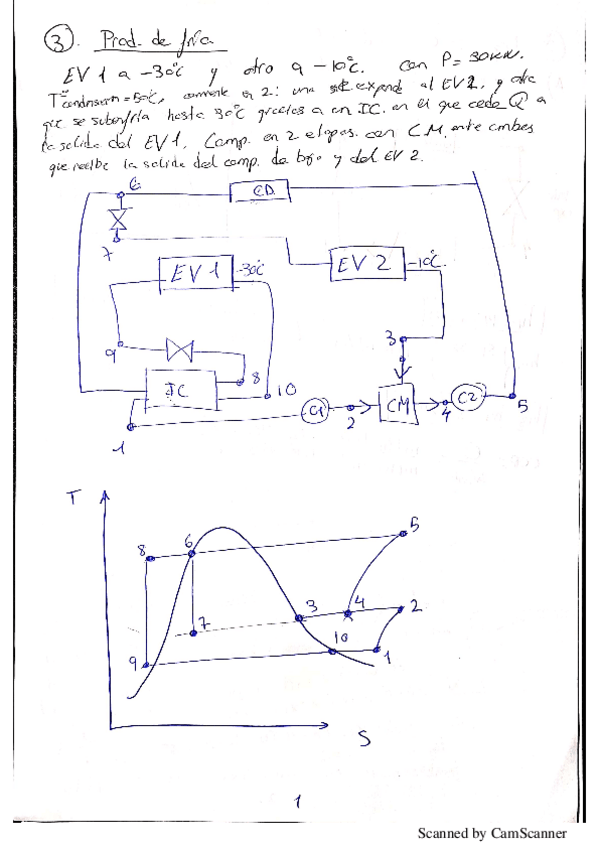 3. Prod. de frío
EV 1 a -30°C y otro a -10°C. con P= 30KW.
T condensación = 50°C, corriente en 2: una se expande al EV2, y otra
que se subenfría hasta 30°C gracias a un IC. en el que cede Q a
la salida del EV1. Comp. en 2 etapas. con CM. entre ambas
que recibe la salida del comp. de bajo y del EV 2.
6
CD
7
EV 1
-30°C
EV 2
-10°C
3
9
8
IC
10
C1
2
CM
4
C2
5
1
T
8
6
5
7
3
4
2
10
9
1
S
1
Scanned by CamScanner